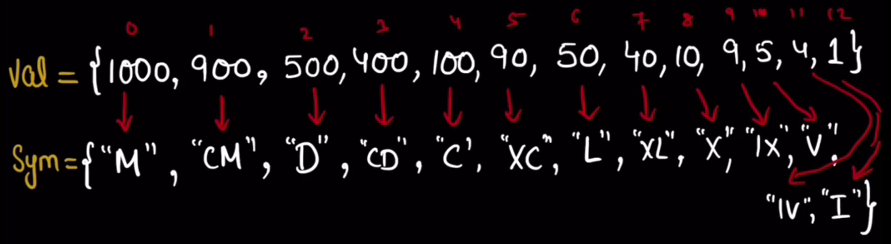 0 1 2 3 4 5 6 7 8 9 10 11 12
val = {1000, 900, 500, 400, 100, 90, 50, 40, 10, 9, 5, 4, 1}
Sym = {"M", "CM", "D", "CD", "C', "XC", "L", "XL", "X", "IX", "V",
"IV", "I"}